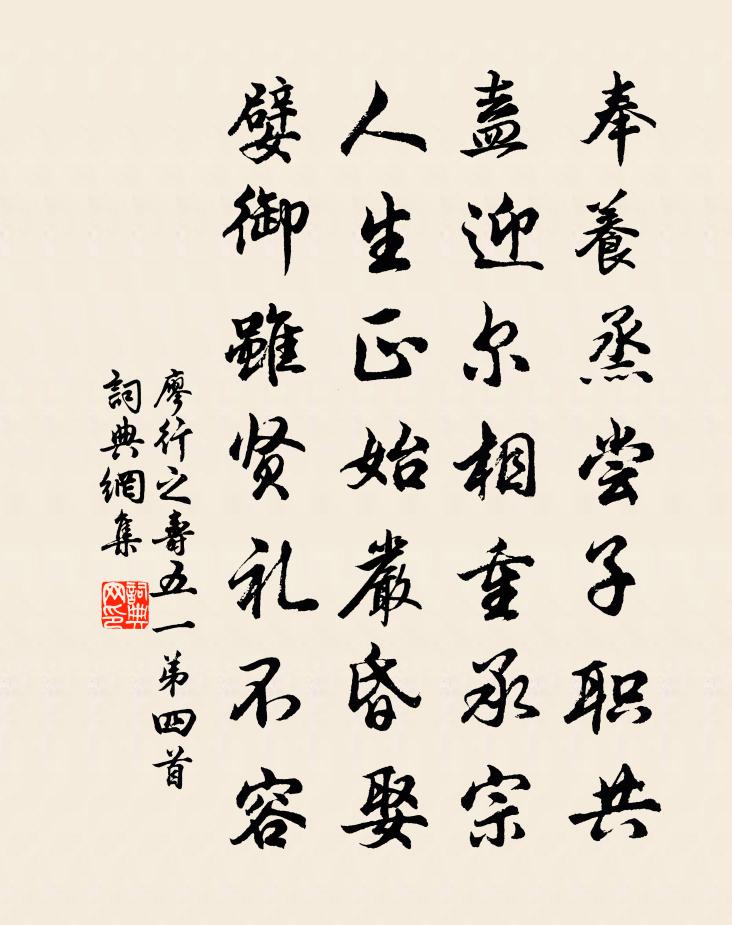 奉養烝尝子职共
盍迎尔相重承宗
人生正始嚴昏娶
嬖御雖贤礼不容
廖行之壽五一第四首
詞典網集
詞典网印